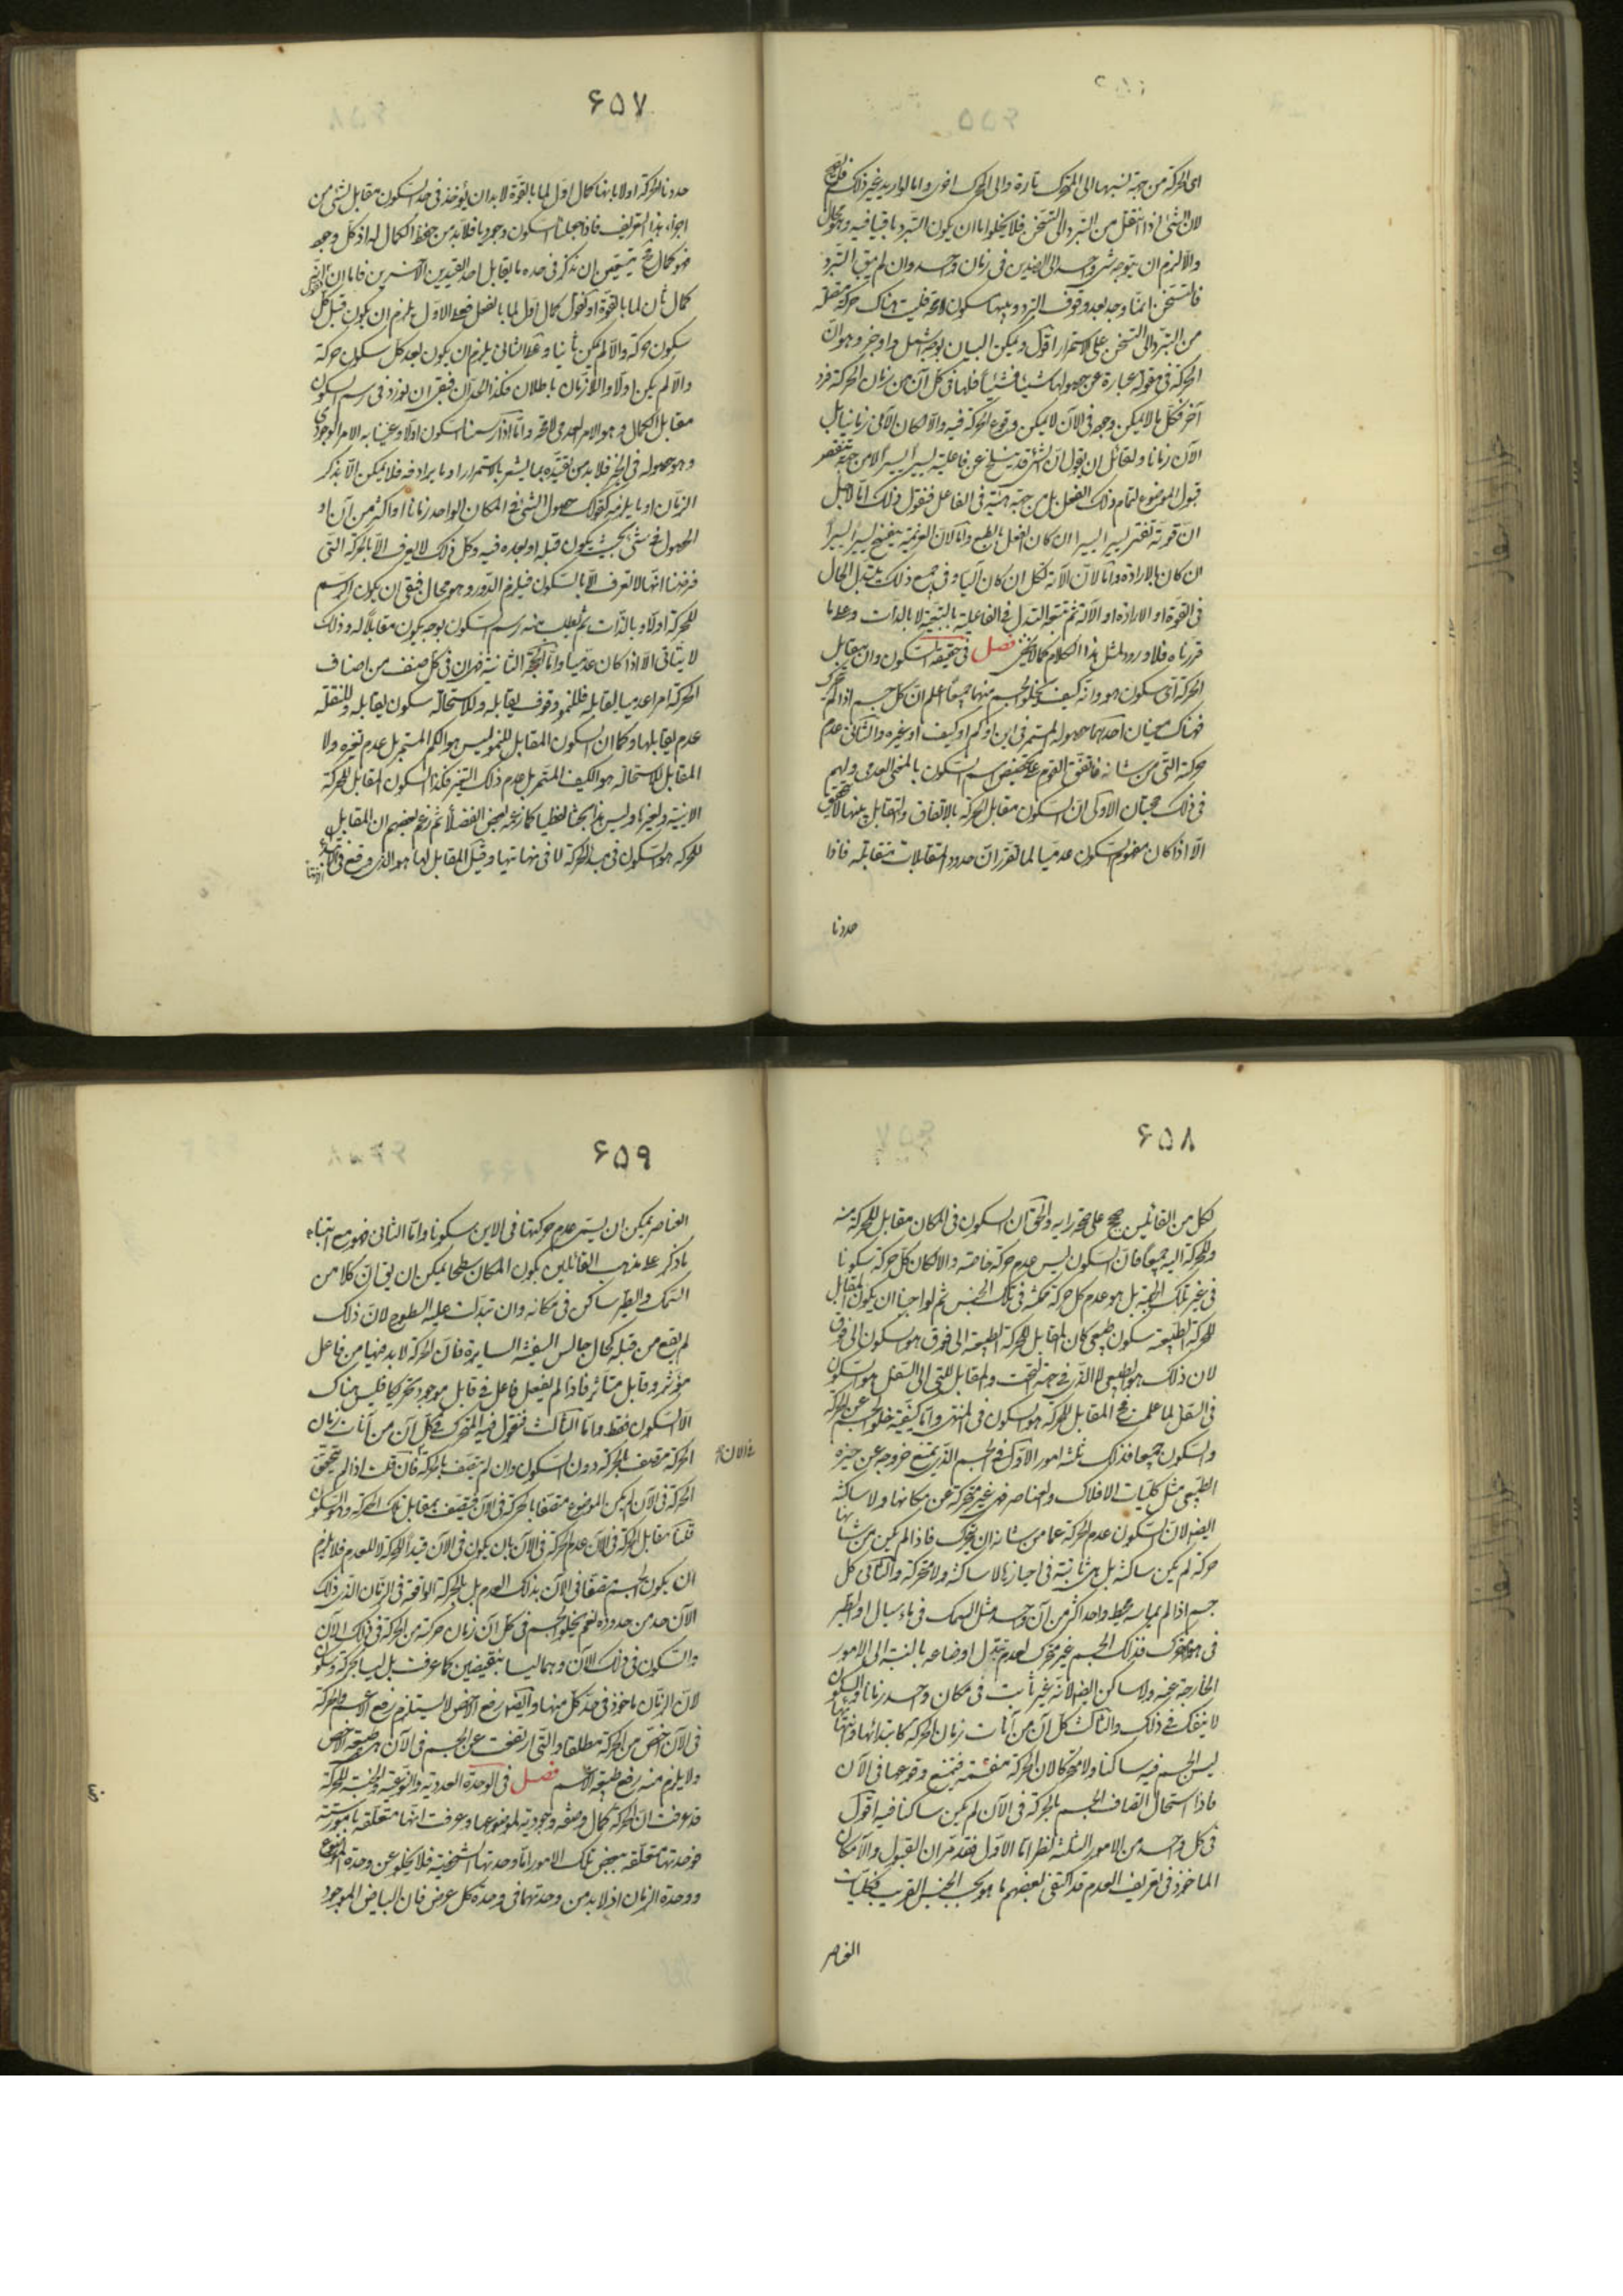 اى الحركة من جهة نسبتها الى المتحرك تارة والى المحرك اخرى واما لو اريد غير ذلك فلم يصح
لان الشئ اذا انتقل من التبرد الى التسخن فلا يخلو اما ان يكون التبرد باقيا فيه وهو محال
والا لزم ان يتوجه شئ واحد الى الضدين فى زمان واحد وان لم يبق التبرد
فالتسخن انما وجد بعد وقوف التبرد وبينهما سكون لا محة فليست هناك حركة متصلة
من التبرد الى التسخن على الاستمرار اقول ويمكن البيان بوجه اشمل واوجز وهو ان
الحركة فى مقولة عبارة عن حصولها شيئا فشيئا فلها فى كل آن من زمان الحركة فرد
آخر فكل ما لا يمكن وجوده فى الآن لا يمكن وقوع الحركة فيه والا لكان الآنى زمانيا بل
الآن زمانا ولقائل ان يقول ان الشئ قد ينسلخ عن فاعليته يسيرا يسيرا لا من جهة تنقص
قبول الموضوع لتمام ذلك الفعل بل من جهة هيئة فى الفاعل فنقول ذلك اما لاجل
ان قوته تفتر يسيرا يسيرا ان كان الفعل بالطبع واما لان العزيمة تنفسخ يسيرا يسيرا
ان كان بالارادة واما لان الآلة تكل ان كان آليا وفى جميع ذلك يتبدل الحال
فى القوة او الارادة او الآلة ثم يتبعه التبدل فى الفاعلية بالتبعية لا بالذات وعلى ما
قررناه فلا ورود لمثل هذا الكلام كما لا يخفى فصل فى حقيقة السكون وان مقابل
الحركة اى سكون هو وانه كيف يخلو الجسم منهما جميعا اعلم ان كل جسم اذا لم يتحرك
فهناك معنيان احدهما حصوله المستمر فى اين او كم او كيف او غيره والثانى عدم
حركته التى من شانه فاتفق القوم على تخصيص اسم السكون بالمعنى العدمى ولهم
فى ذلك حجتان الاولى ان السكون مقابل الحركة بالاتفاق والتقابل بينهما لا يتحقق
الا اذا كان مفهوم السكون عدميا لما تقرر ان حدود المتقابلات متقابلة فاذا
حددنا
۶۵۷
حددنا الحركة اولا بانها كمال اول لما بالقوة لا بد ان يؤخذ فى حد السكون مقابل لشئ من
اجزاء هذا التعريف فاذا جعلنا السكون وجوديا فلا بد من حفظ الكمال له اذ كل وجود
فهو كمال فح يتعين ان نذكر فى حده ما يقابل احد القيدين الآخرين فاما ان نقول انه
كمال ثان لما بالقوة او نقول كمال اول لما بالفعل فعلى الاول يلزم ان يكون قبل كل
سكون حركة والا لم يكن ثانيا وعلى الثانى يلزم ان يكون بعد كل سكون حركة
والا لم يكن اولا واللازمان باطلان فكذا الحدان فبقى ان نورد فى رسم السكون
مقابل الكمال وهو الامر العدمى لا محة واما اذا رسمنا السكون اولا وعنينا به الامر الوجودى
وهو حصوله فى الحيز فلا بد من تقييده بما يشعر بالاستمرار او ما يرادفه فلا يمكن الا بذكر
الزمان او ما يلزمه كقولك حصول الشئ فى المكان الواحد زمانا او اكثر من آن او
الحصول فى شئ بحيث يكون قبله او بعده فيه وكل ذلك لا يعرف الا بالحركة التى
فرضنا انها لا تعرف الا بالسكون فيلزم الدور وهو محال فبقى ان يكون الرسم
للحركة اولا وبالذات ثم يطلب منه رسم السكون بوجه يكون مقابلا له وذلك
لا يتأتى الا اذا كان عدميا واما الحجة الثانية فهى ان فى كل صنف من اصناف
الحركة امرا عدميا يقابله فللنمو وقوف يقابله وللاستحالة سكون يقابله وللنقلة
عدم يقابلها وكما ان السكون المقابل للنمو ليس هو الكم المستمر بل عدم تغيره ولا
المقابل للاستحالة هو الكيف المستمر بل عدم ذلك التغير فكذا السكون المقابل للحركة
الاينية وغيرها وليس هذا بحثا لفظيا كما زعمه بعض الفضلا ثم زعم بعضهم ان المقابل
للحركة هو السكون فى مبدء الحركة لا فى نهايتها وقيل المقابل لها هو الذى وقع فى
۶۵۸
لكل من القائلين حجج على صحة رايه والحق ان السكون فى المكان مقابل للحركة منه
وللحركة اليه جميعا فان السكون ليس عدم حركة خاصة والا لكان كل حركة سكونا
فى غير تلك الجهة بل هو عدم كل حركة ممكنة فى ذلك الجنس ثم لو اوجبنا ان يكون المقابل
للحركة الطبيعية سكون طبيعى كان المقابل للحركة الطبيعية الى فوق هو السكون الى فوق
لان ذلك هو الطبيعى لا الذى فى جهة التحت والمقابل للتى الى السفل هو السكون
فى السفل لما علمت فح المقابل للحركة هو السكون فى المنتهى واما كيفية خلو الجسم عن الحركة
والسكون جميعا فذلك بثلثة امور الاول فى الجسم الذى يمتنع خروجه عن حيزه
الطبيعى مثل كليات الافلاك والعناصر فهى غير متحركة عن مكانها ولا ساكنة
ايضا لان السكون عدم الحركة عما من شانه ان يتحرك فاذا لم يكن من شانها
حركة لم يكن ساكنة بل هى ثابتة فى احيازها لا ساكنة ولا متحركة والثانى كل
جسم اذا لم يماسه محيط واحد اكثر من آن واحد مثل السمك فى ماء سيال او الطير
فى هواء متحرك فذلك الجسم غير متحرك لعدم تبدل اوضاعه بالنسبة الى الامور
الخارجة عنه ولا ساكن ايضا لانه غير ثابت فى مكان واحد زمانا والسكون
لا ينفك فى ذلك والثالث كل آن من آنات زمان الحركة كابتدائها وانتهائها
ليس الجسم فيه ساكنا ولا متحركا لان الحركة منقسمة فيمتنع وقوعها فى الآن
فاذا استحال اتصاف الجسم بالحركة فى الآن لم يكن ساكنا فيه اقول
فى كل واحد من الامور الثلثة نظر اما الاول فقد مر ان القبول والامكان
الماخوذ فى تعريف العدم قد اكتفى بعضهم ما هو بحسب الجنس القريب فكليات
العناصر
۶۵۹
العناصر يمكن ان يسمى عدم حركتها فى الاين سكونا واما الثانى فهو مع ابتناء
ما ذكر على مذهب القائلين بكون المكان سطحا يمكن ان يق ان كلا من
السمك والطير ساكن فى مكانه وان تبدلت عليه السطوح لان ذلك
لم يقع من قبله كحال جالس السفينة السايرة فان الحركة لا بد فيها من فاعل
مؤثر وقابل متأثر فاذا لم يفعل فاعل فى قابل موجود تحريكا فليس هناك
الا السكون فقط واما الثالث فنقول فيه المتحرك فى كل آن من آنات زمان
الحركة متصف بالحركة دون السكون وان لم يتصف بالحركة فى الآن فان قلت اذا لم يتحقق
الحركة فى الآن لم يكن الموضوع متصفا بالحركة فى الآن فيتصف بمقابل تلك الحركة وهو السكون
قلنا مقابل الحركة فى الآن عدم الحركة فى الآن بان يكون فى الآن قيدا للحركة لا للعدم فلا يلزم
ان يكون الجسم متصفا فى الآن بذلك العدم بل بالحركة الواقعة فى الزمان الذى ذلك
الآن حد من حدوده نعم يخلو الجسم فى كل آن زمان حركته من الحركة فى ذلك الآن
والسكون فى ذلك الآن وهما ليسا بنقيضين كما عرفت بل ليسا بحركة وسكون
لان الزمان ماخوذ فى حد كل منهما وايضا رفع الاخص لا يستلزم رفع الاعم والحركة
فى الآن اخص من الحركة مطلقا والتى ارتفعت عن الجسم فى الآن هى طبيعة الاخص
ولا يلزم منه رفع طبيعة الاعم فصل فى الوحدة العددية والنوعية والجنسية للحركة
قد عرفت ان الحركة كمال وصفة وجودية لموضوعها وعرفت انها متعلقة بامور ستة
فوحدتها متعلقة ببعض تلك الامور اما وحدتها الشخصية فلا يخلو عن وحدة الموضوع
ووحدة الزمان اذ لا بد من وحدتهما فى وحدة كل عرض فان البياض الموجود